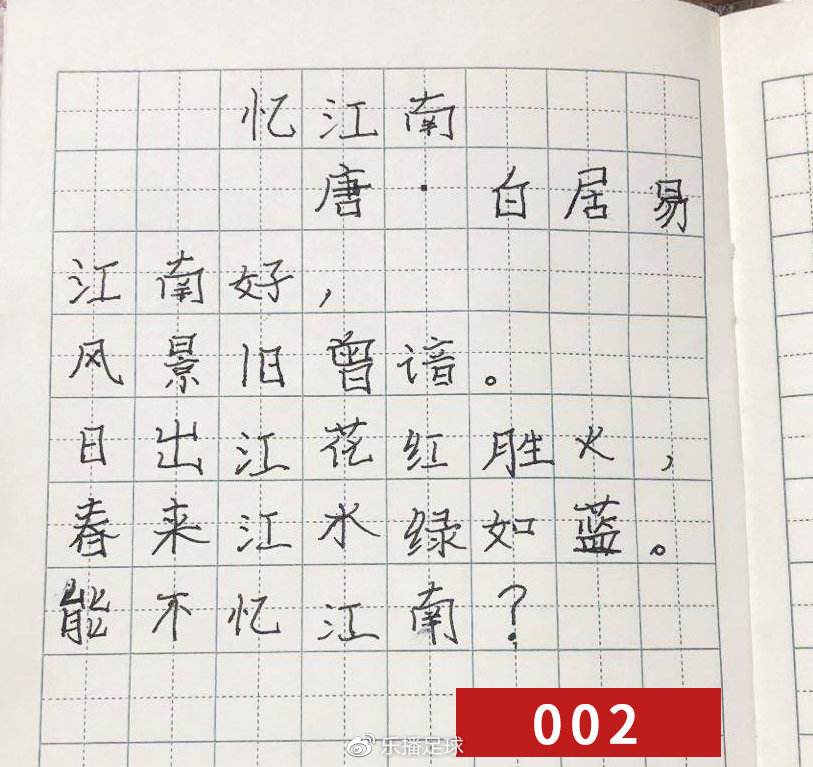 忆江南
唐·白居易
江南好，
风景旧曾谙。
日出江花红胜火，
春来江水绿如蓝。
能不忆江南？
002
乐播足球